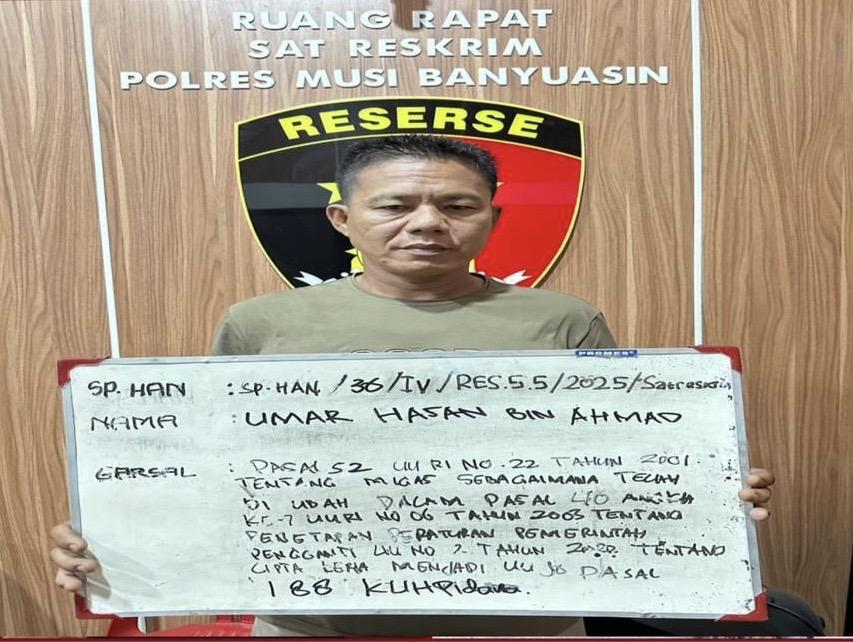 RUANG RAPAT
SAT RESKRIM
POLRES MUSI BANYUASIN
RESERSE
PROMES
SP. HAN : SP. HAN / 36 / IV / RES.5.5 / 2025 / Satreskrim
NAMA : UMAR HASAN BIN AHMAD
GARSAL : PASAL 52 UU RI NO. 22 TAHUN 2001
TENTANG MIGAS SEBAGAIMANA TELAH
DI UBAH DALAM PASAL 40 ANGKA
KE-7 UURI NO 06 TAHUN 2003 TENTANG
PENETAPAN PERATURAN PEMERINTAH
PENGGANTI UU NO 2 TAHUN TENTANG
CIPTA KERJA MENJADI UU JO PASAL
188 KUHPidana.